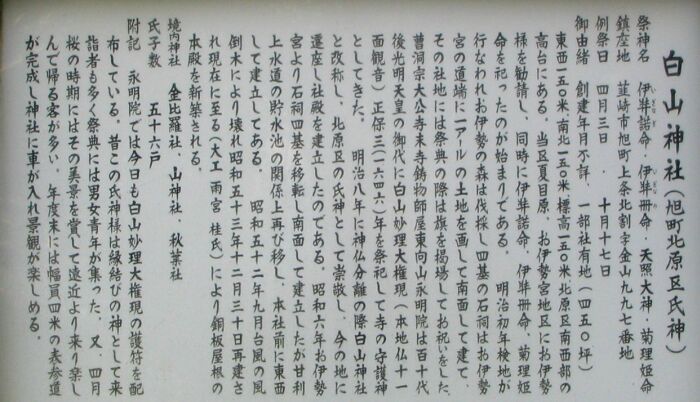 白山神社(旭町北原区氏神)
祭神名 伊弉諾命・伊弉冊命・天照大神・菊理姫命
鎮座地 韮崎市旭町上条北割字金山九九七番地
例祭日 四月三日 . 十月十七日
御由緒 創建年月不詳、一部社有地(四五〇坪)
東西一五〇米南北一五〇米標高一五〇米北原区南西部の
高台にある。当区夏目原、お伊勢宮地区にお伊勢
様を勧請し、同時に伊弉諾命、伊弉冊命、菊理姫
命を祀ったのが始まりである。 明治初年検地が
行なわれお伊勢の森は伐採し四基の石祠はお伊勢
宮の道端に一アールの土地を画して南面して建て、
その社地には祭典の際は旗を揚場してお祝いをした。
曹洞宗大公寺末寺鋳物師屋東向山永明院は百十代
後光明天皇の御代に白山妙理大権現(本地仏十一
面観音)正保三(一六四六)年を祭祀して寺の守護神
としてきた。 明治八年に神仏分離の際白山神社
と改称し、北原区の氏神として崇敬し、今の地に
遷座し社殿を建立したのである。 昭和六年お伊勢
宮より石祠四基を移転し南面して建立したが甘利
上水道の貯水池の関係上再び移し、本社前に東西
して建立してある。 昭和五十二年九月台風の風
倒木により壊れ昭和五十三年十二月三十日再建さ
れ現在に至る(大工 雨宮 桂氏)により銅板屋根の
本殿を新築される。
境内神社 金比羅社、山神社、秋葉社
氏子数 五十六戸
附記 永明院では今日も白山妙理大権現の護符を配
布している。昔この氏神様は縁結びの神として来
詣者も多く祭典には男女青年が集った。又、四月
桜の時期にはその美景を賞して遠近より来り楽し
んで帰る客が多い。年度末には幅員四米の表参道
が完成し神社に車が入れ景観が楽しめる。